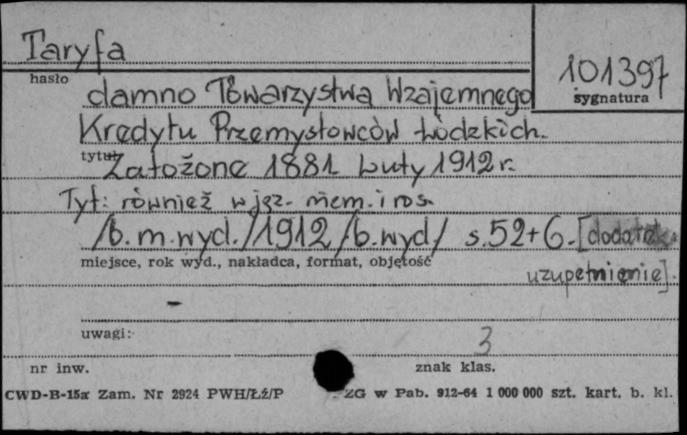 Taryfa
hasło
101397
sygnatura
damno Towarzystwa Wzajemnego
Kredytu Przemysłowców Łódzkich.
tytuł
Założone 1881 Luty 1912 r.
Tyt: również w jęz. niem. i ros.
/b.m.wyd./1912/b.wyd/ s.52+6.[dodatek.
miejsce, rok wyd., nakładca, format, objętość
uzupełnienie].
-
uwagi:
3
nr inw. znak klas.
CWD-B-15a Zam. Nr 2924 PWH/Łź/P ZG w Pab. 912-64 1 000 000 szt. kart. b. kl.